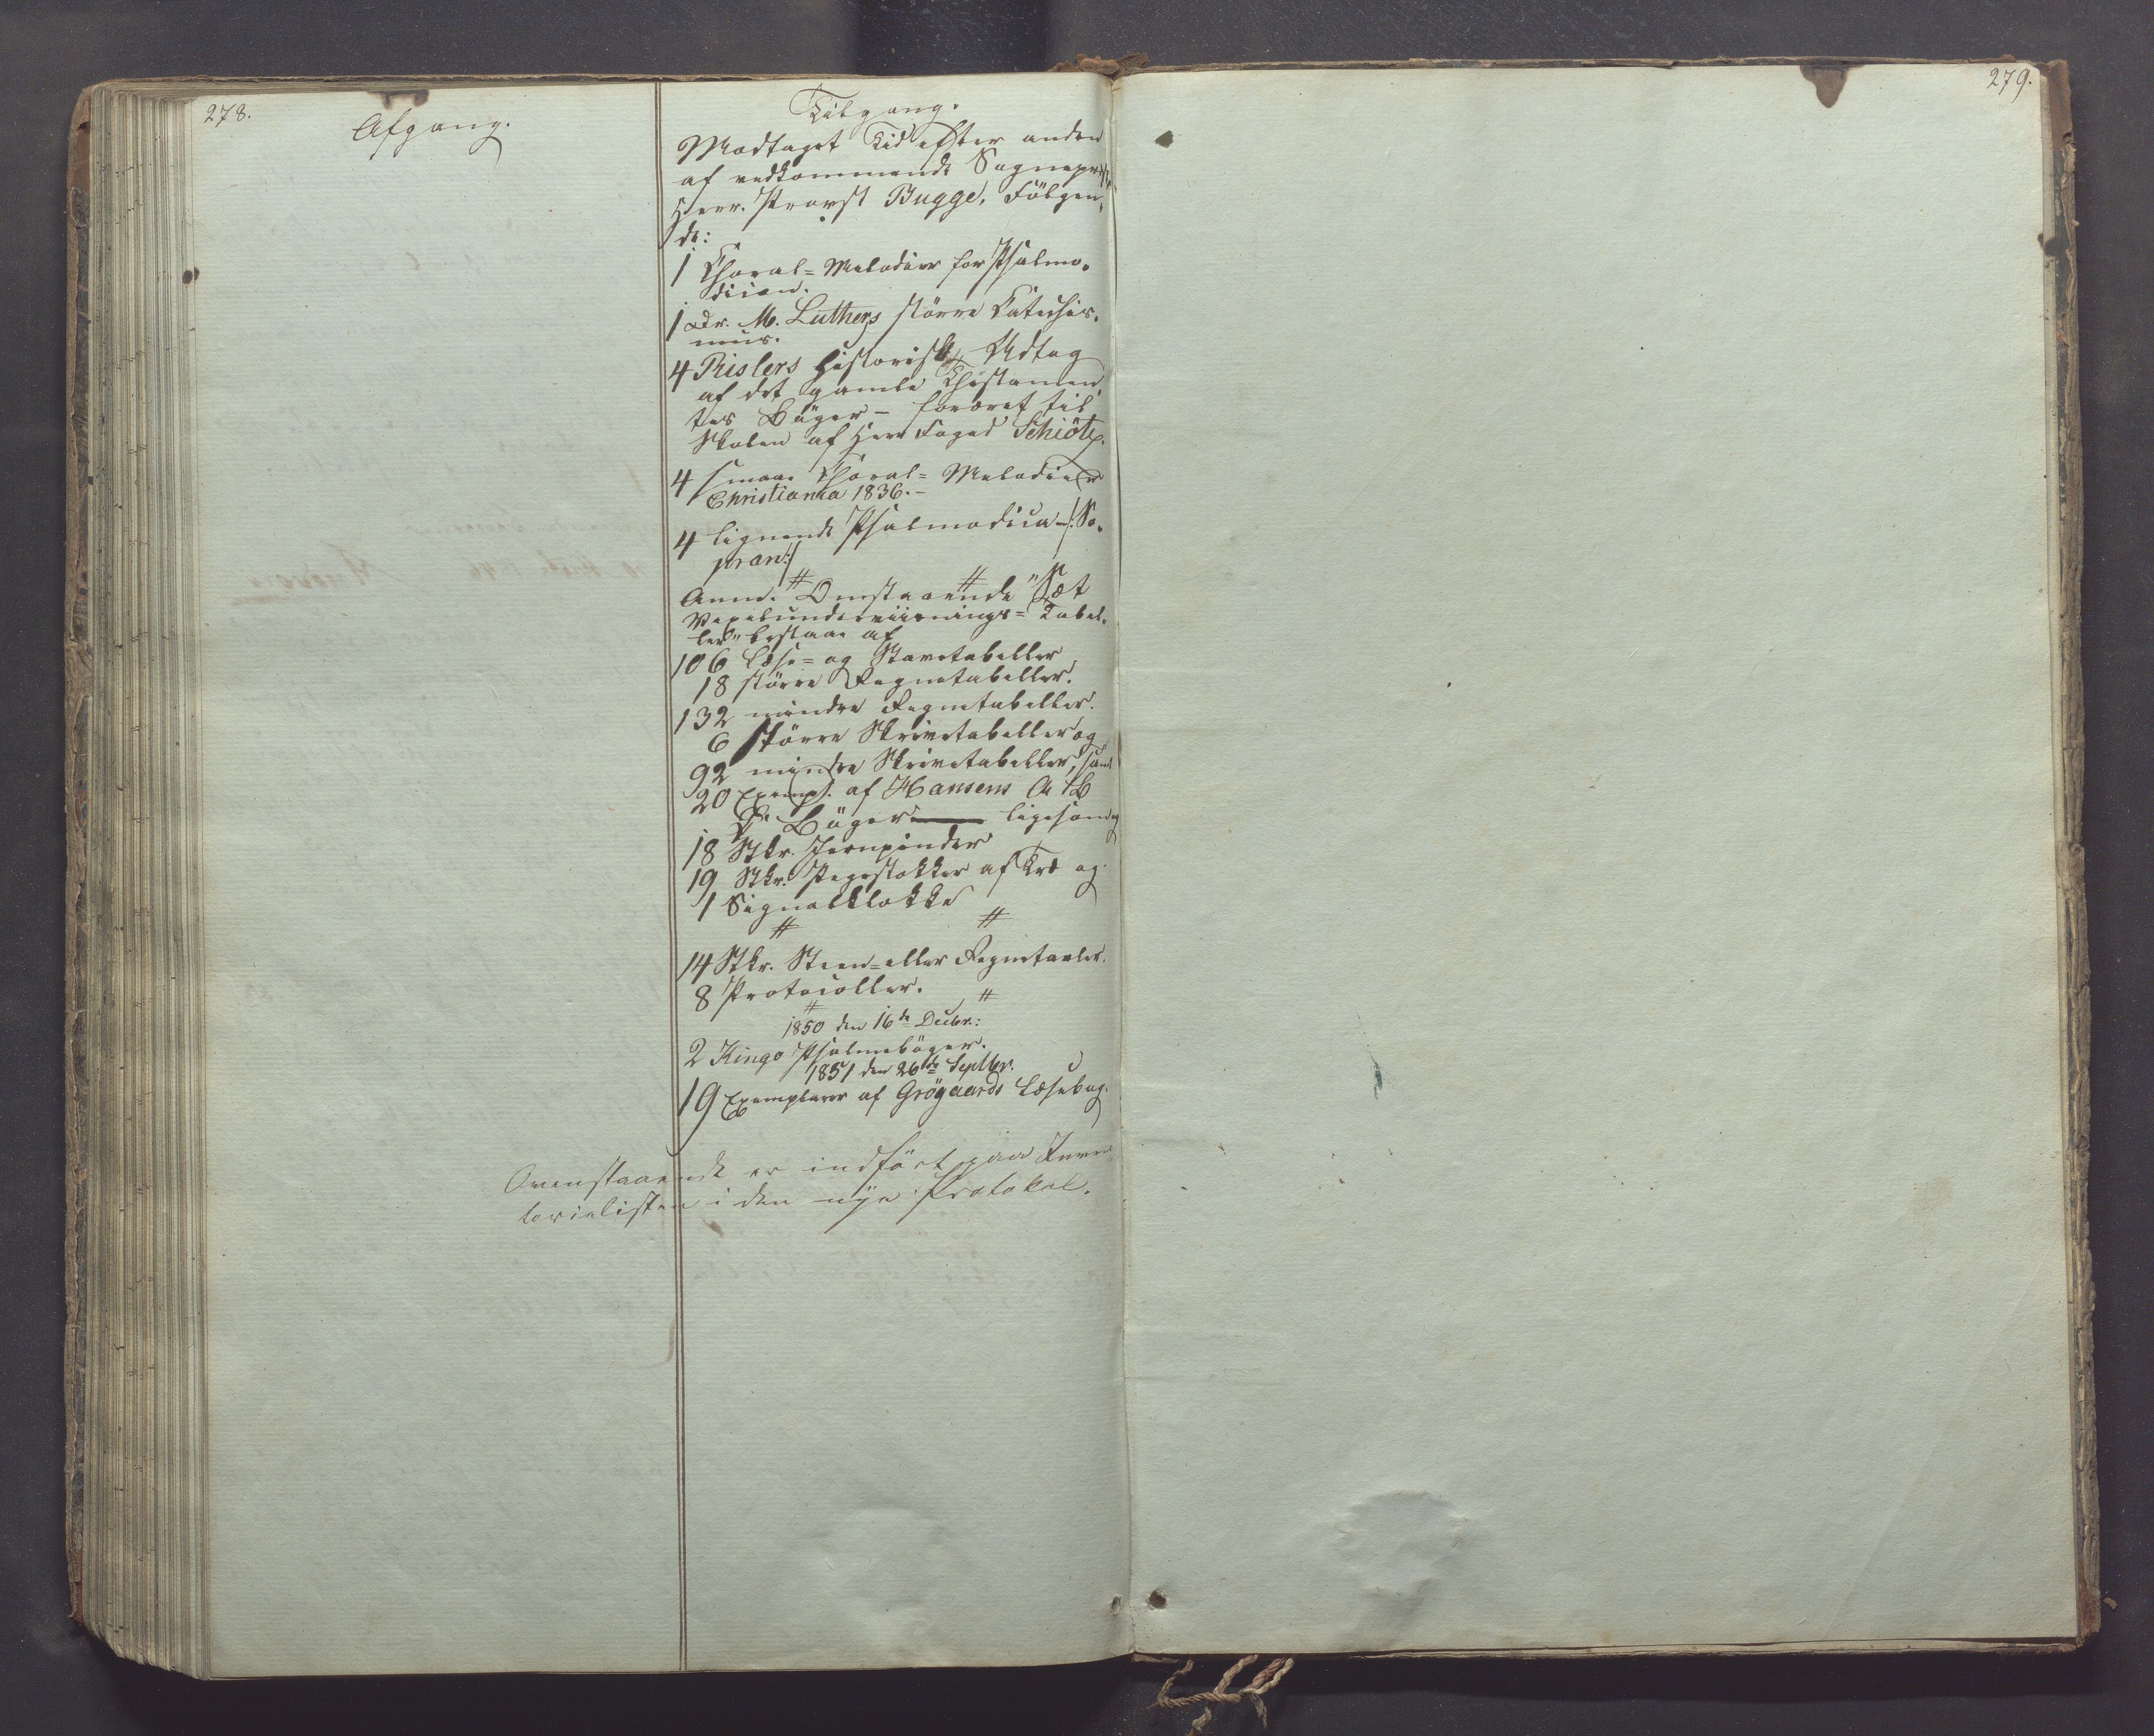 278.
Afgang.
Tilgang.
Modtaget Tid efter anden
af vedkommende Sognepræst
Herr. Provst Bugge, Fölgen-
de:
1 Choral=Melodier for Psalmo-
dicon.
1 Dr. M. Luthers större Catechis-
mus.
4 Rislers historisk Udtog
af det gamle Thestamen
tes Böger – foræret til
Skolen af Herr Foged Schiötz.
4 smaae Choral=Melodier
Christiania 1836.–
4 lignende Psalmodica –/: So-
pran:/
# #
Anm. Omstaaende "Sæt
Vexelunderviisnings=Tabel-
ler" bestaae af
106 Læse= og Stavetabeller
18 större Regnetabeller.
132 mindre Regnetabeller.
6 större Skrivetabeller og
92 mindre Skrivetabeller, samt
20 Exempl. af Hansens A B
C Böger — ligesom og
18 Stkr. Jernpinder
19 Stkr. Pegestokker af Træ og
1 Signalklokke
# #
14 Stkr. Steen= eller Regnetavler.
8 Protocoller.
# #
1850 den 16de Decbr.:
2 Kingo Psalmeböger.
1851 den 26de Septbr.
19 Exemplarer af Grögaards Læsebog.
Ovenstaaende er indfört paa Inven-
torielisten i den nye Protokol.
279.